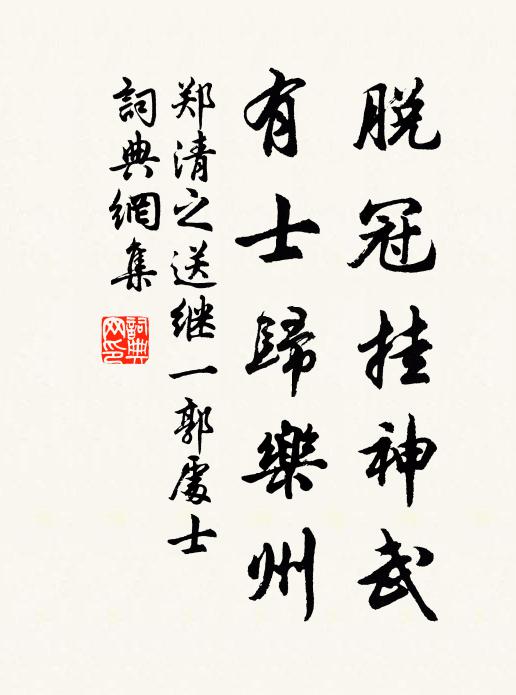 脱冠挂神武
有士歸樂州
郑清之送继一郭處士
詞典網集
詞典网印